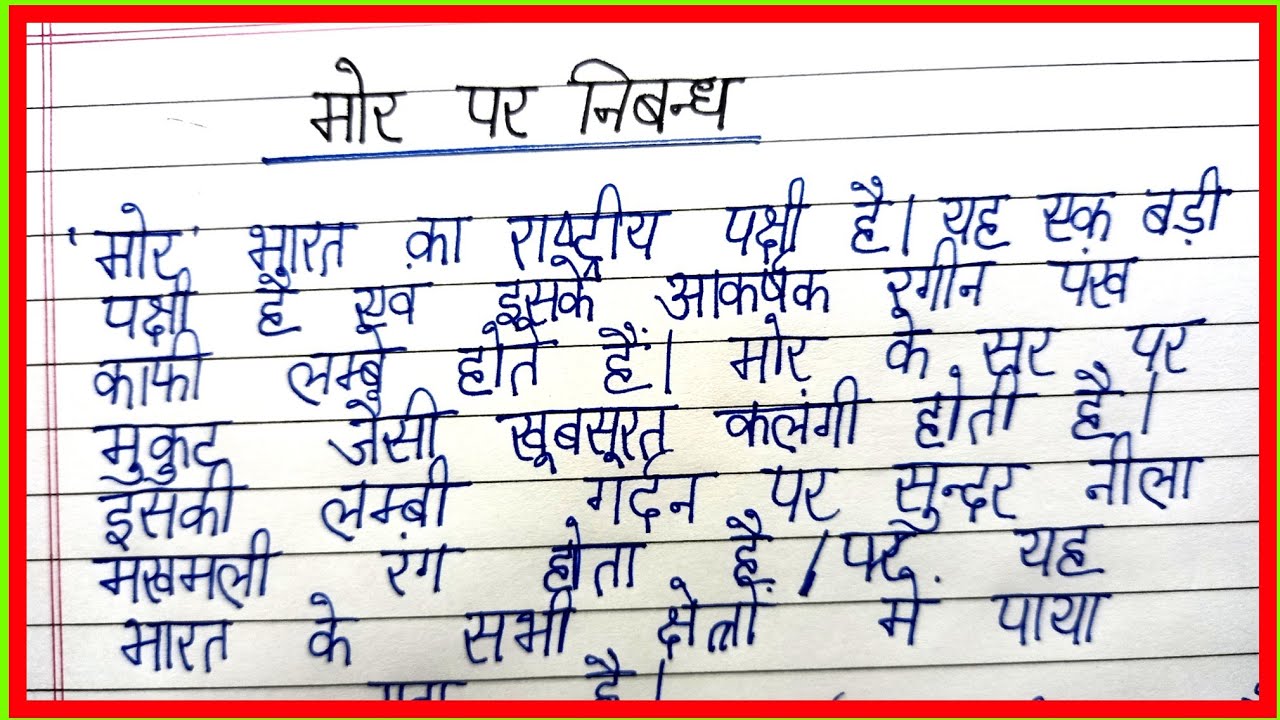 मोर पर निबन्ध
'मोर' भारत का राष्ट्रीय पक्षी है। यह एक बड़ी
पक्षी है एव इसके आकर्षक रगीन पंख
काफी लम्बे होते हैं। मोर के सर पर
मुकुट जैसी खूबसूरत कलंगी होती है।
इसकी लम्बी गर्दन पर सुन्दर नीला
मखमली रंग होता है। यह
भारत के सभी क्षेत्रों मे पाया
है।